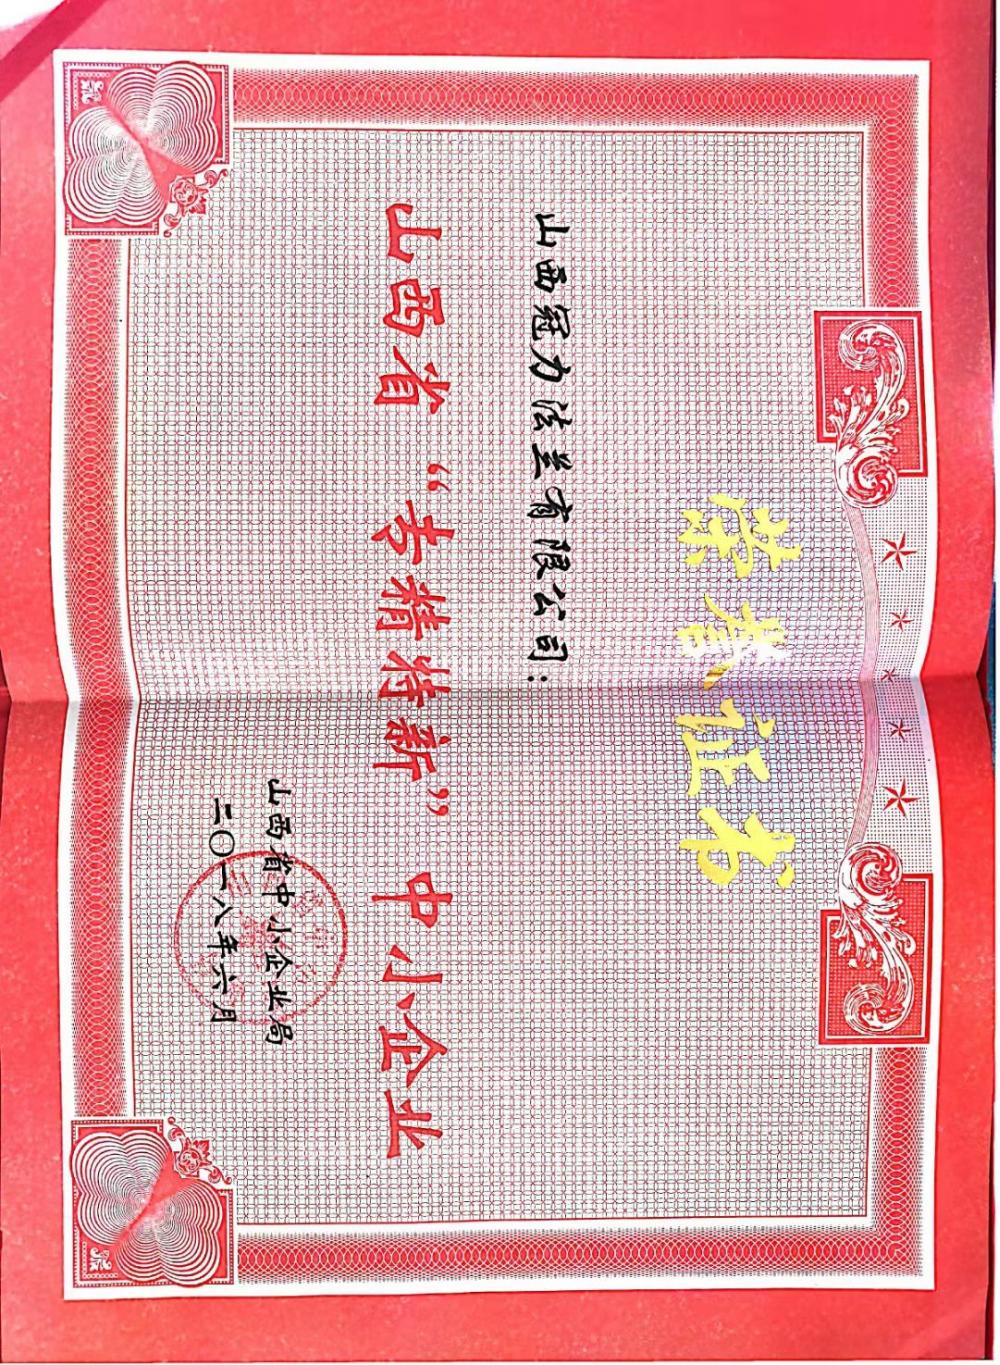 荣誉证书
山西冠力法兰有限公司:
山西省“专精特新”中小企业
山西省中小企业局
二〇一八年六月